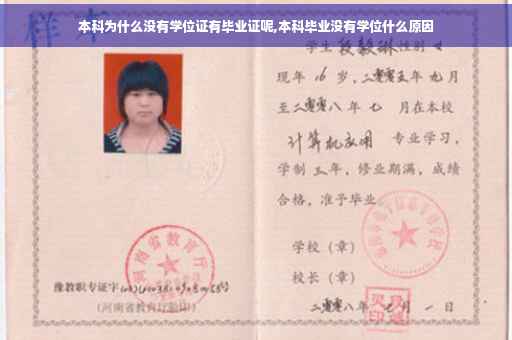 本科为什么没有学位证有毕业证呢,本科毕业没有学位什么原因
样本
学生 段毅琳 性别 女
现年 16 岁，二零零五年 九月
至二零零八年 七 月在本校
计算机应用 专业学习，
学制 三年，修业期满，成绩
合格，准予毕业
学校（章）
校长（章）
二零零八年 七 月 一 日
河南省教育厅
豫教职专证字
(河南省教育厅验印)